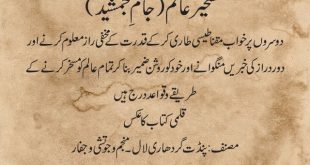 تسخیرِ عالم (جامِ جمشید)
دوسروں پر خواب مقناطیسی طاری کر کے قدرت کے مخفی راز معلوم کرنے اور
دور دراز کی خبریں منگوانے اور خود کو روشن ضمیر بنا کر تمام عالم کو مسخر کرنے کے
طریقے و قواعد درج ہیں
قلمی کتاب کا عکس
مصنف: پنڈت گردھاری لال۔ منجم و جوتشی و جفار